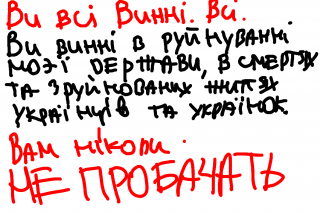 Ви всі винні. Всі.
Ви винні в руйнуванні
моєї держави, в смертях
та зруйнованих життях
українців та українок.
Вам ніколи.
НЕ ПРОБАЧАТЬ